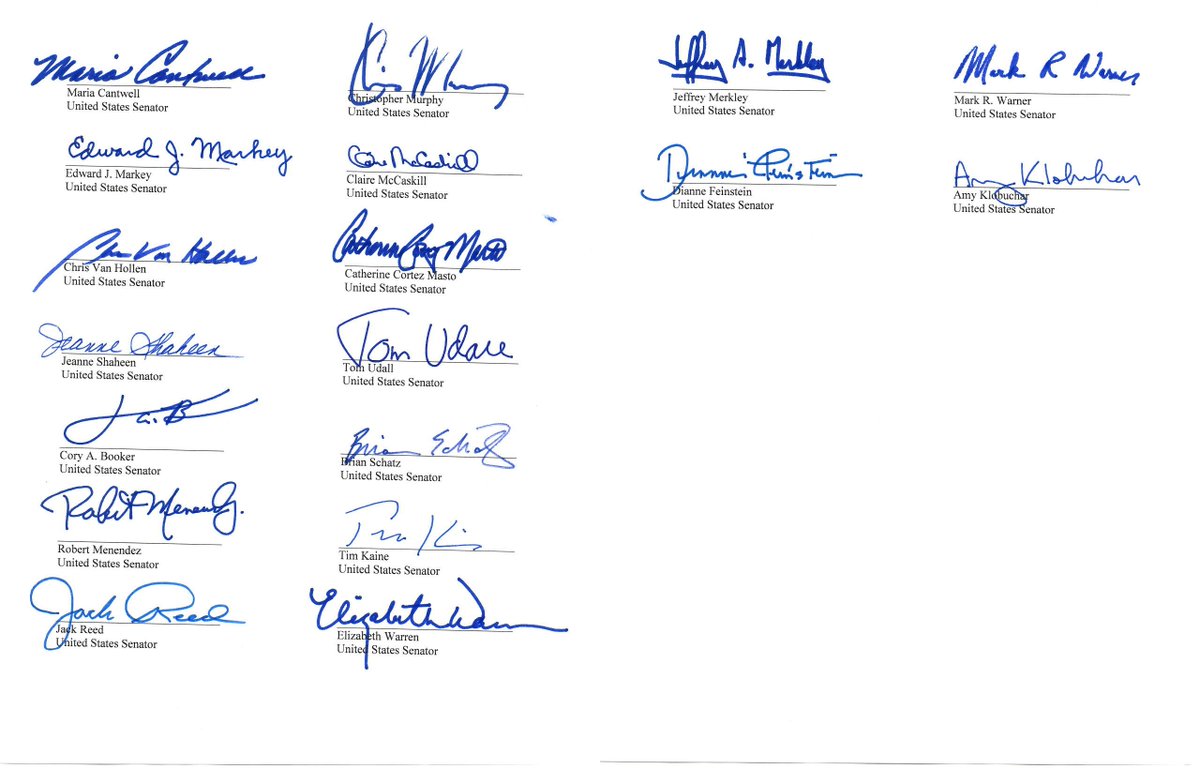 Maria Cantwell
Maria Cantwell
United States Senator
Edward J. Markey
Edward J. Markey
United States Senator
Chris Van Hollen
Chris Van Hollen
United States Senator
Jeanne Shaheen
Jeanne Shaheen
United States Senator
Cory A. Booker
United States Senator
Robert Menendez
Robert Menendez
United States Senator
Jack Reed
Jack Reed
United States Senator
Chris Murphy
Christopher Murphy
United States Senator
Claire McCaskill
Claire McCaskill
United States Senator
Catherine Cortez Masto
Catherine Cortez Masto
United States Senator
Tom Udall
Tom Udall
United States Senator
Brian Schatz
Brian Schatz
United States Senator
Tim Kaine
Tim Kaine
United States Senator
Elizabeth Warren
Elizabeth Warren
United States Senator
Jeffrey A. Merkley
Jeffrey Merkley
United States Senator
Dianne Feinstein
Dianne Feinstein
United States Senator
Mark R Warner
Mark R. Warner
United States Senator
Amy Klobuchar
Amy Klobuchar
United States Senator